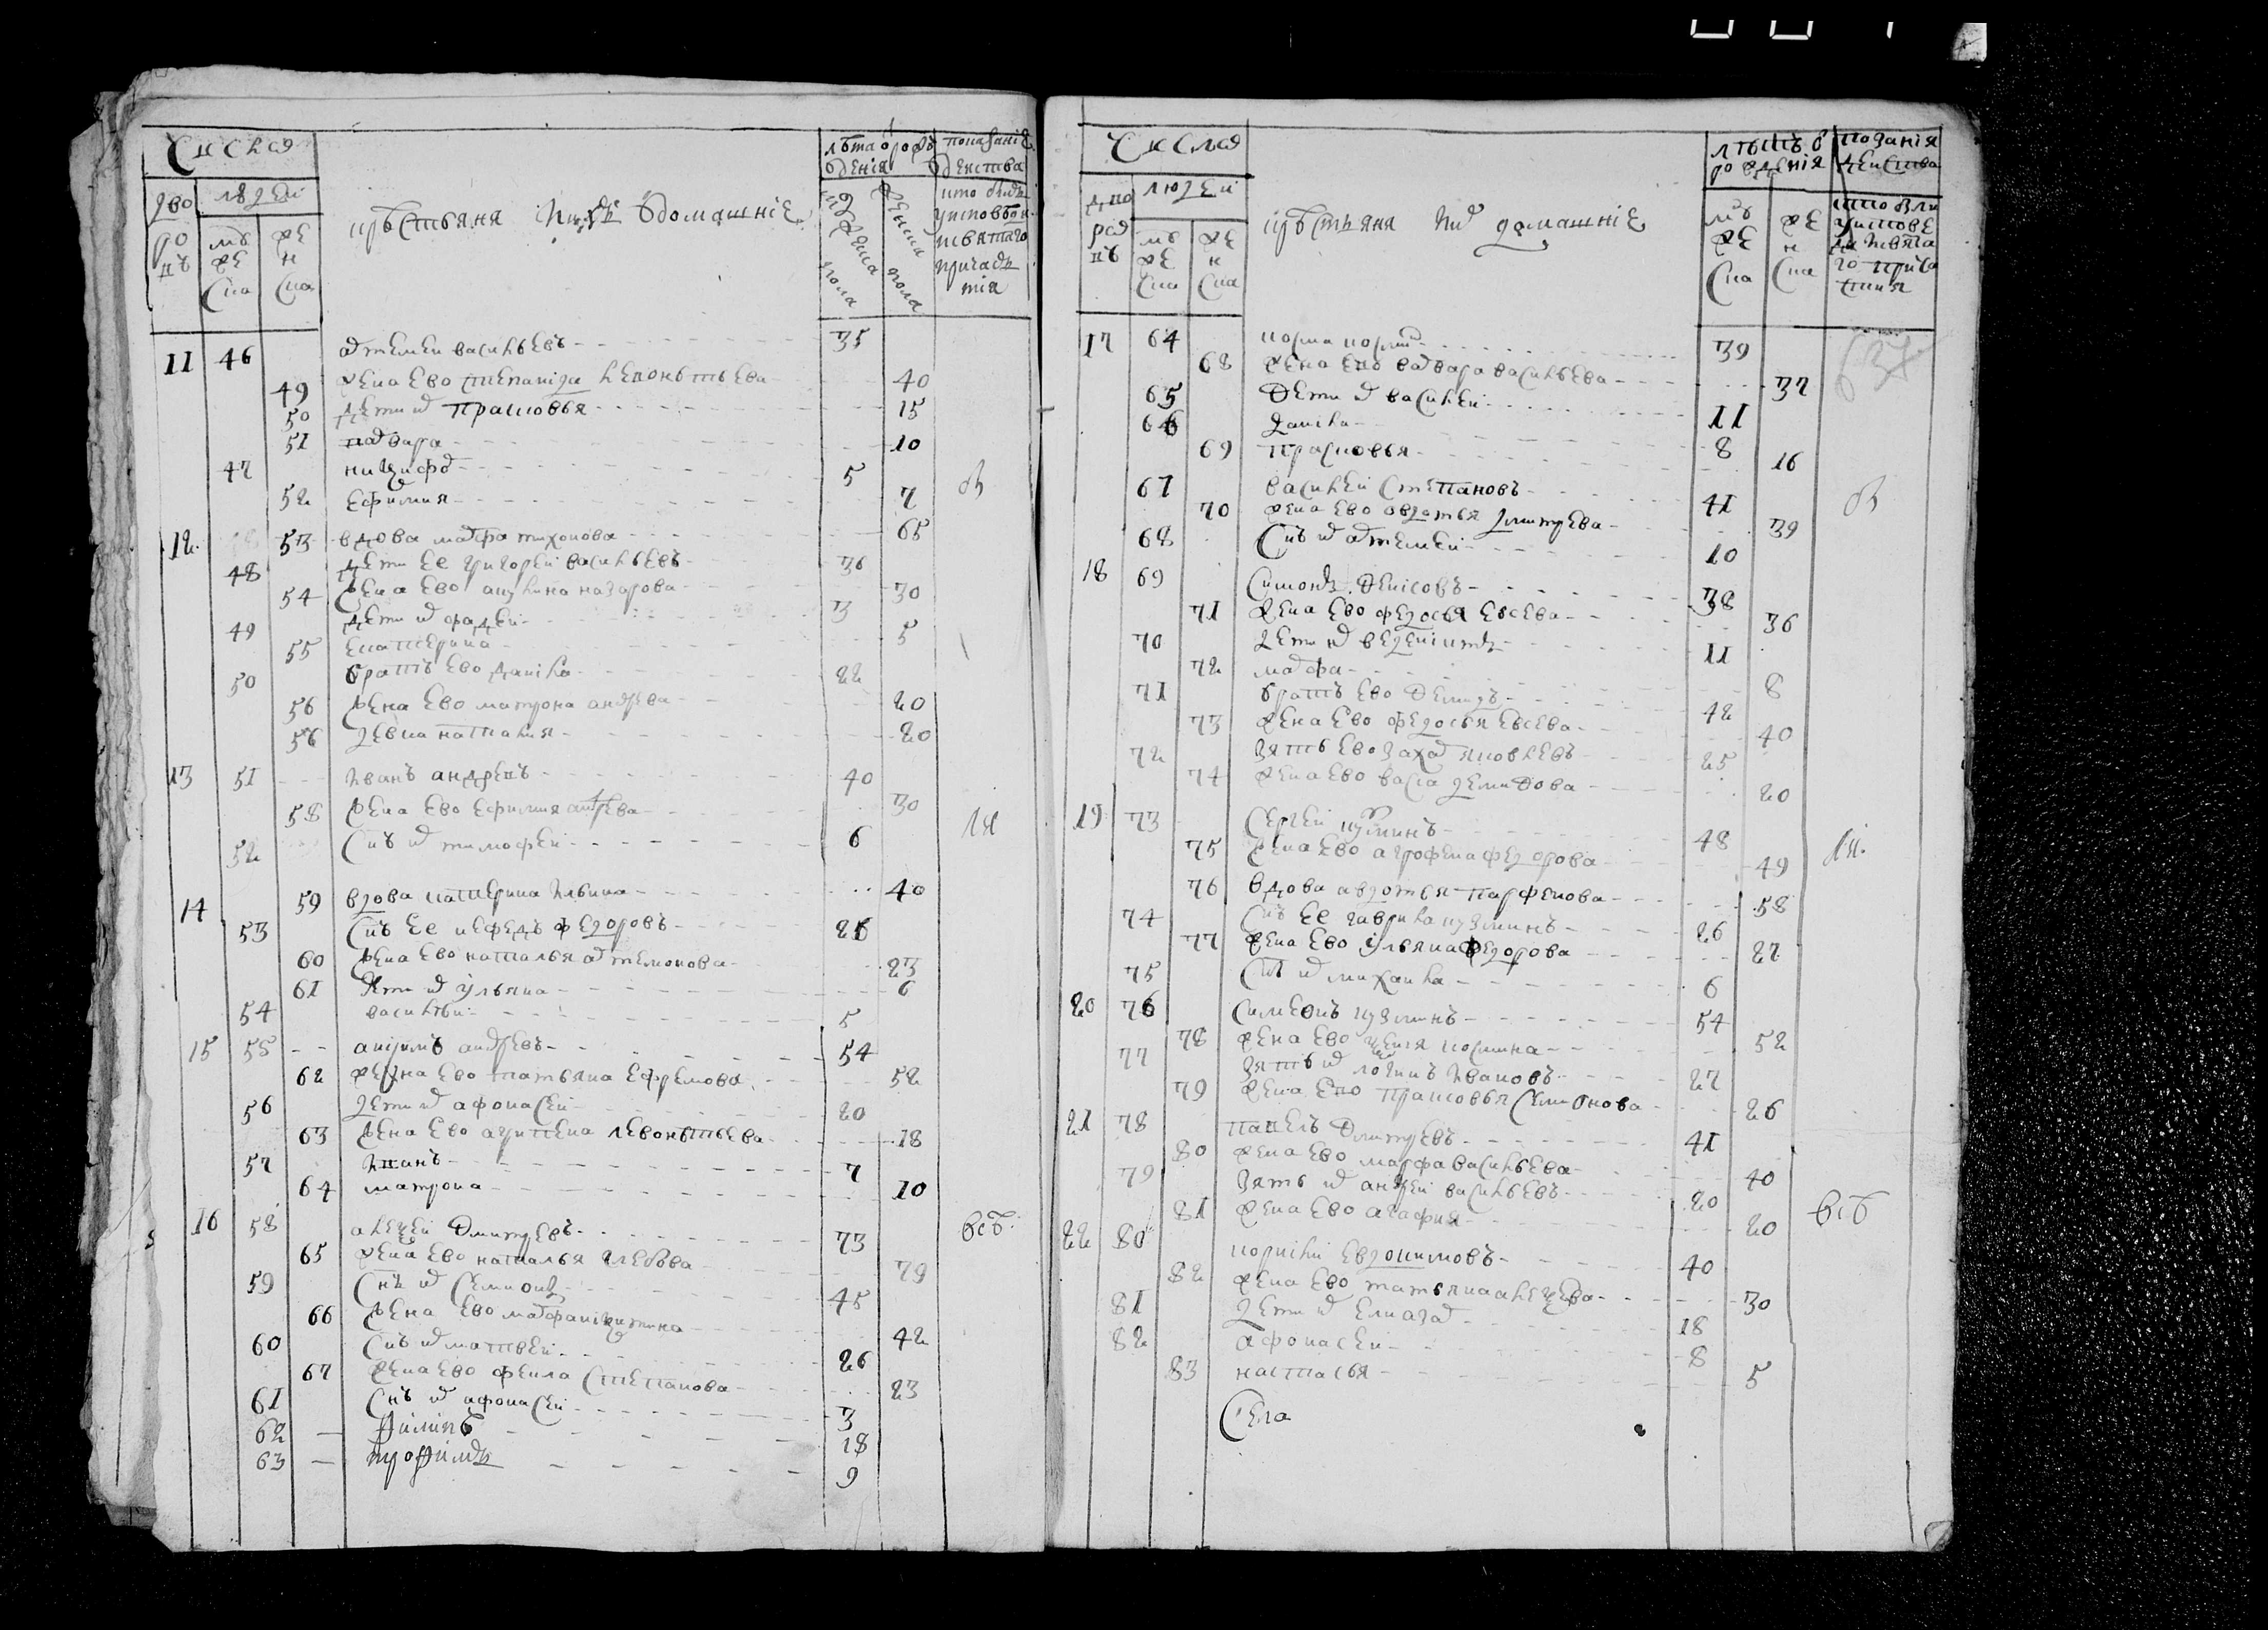 Числа
лѣта рождения
показание действа
дворовъ
людей
крестьяня и их домашние
мужеска пола
женска пола
что были у исповеди и святаго причастия
мужеска
женска
11 46 артемей васильевъ 35
49 жена ево степанида леонтьева 40
50 дети их прасковья 15
51 варвара 10
47 никифор 5
52 ефимия 7
12 53 вдова марфа тихонова 65
48 дети ее григорей васильевъ 36
54 жена ево акулина назарова 30
49 дети их фадей 3
55 катерина 5
50 братъ ево данила 22
56 жена ево матрона андреева 20
56 девка наталия 20
13 51 иванъ андреевъ 40
58 жена ево ефимия 30
52 снъ их тимофей 6
14 59 вдова катерина ильина 40
53 снъ ее нефедъ федоровъ 26
60 жена ево наталья артемонова 23
61 дети их ульяна 6
54 василей 5
15 55 андревъ 54
62 жена ево татьяна ефремова 52
56 дети их афонасей 20
63 жена ево агрипена левонтьева 18
57 иванъ 7
64 матрона 10
16 58 алексей дмитревъ 73
65 жена ево наталья глебова 79
59 снъ их семионъ 45
66 жена ево марфа никитина 42
60 снъ их матвей 26
67 жена ево фекла степанова 23
61 снъ их афонасей 3
62 филипъ 18
63 трофимъ 9
Числа
лѣтъ рождения
показания действа
дворовъ
людей
крестьяня их домашние
мужеска
женска
мужеска
женска
что были у исповеди и святаго причастия
17 64 39
68 жена ево варвара васильева 37
65 дети их василей 11
66 данила 8
69 прасковья 16
67 василей степановъ 41
70 жена ево авдотья дмитрева 39
68 снъ их артемей 10
18 69 симонъ денисовъ 38
71 жена ево федосья евсева 36
70 дети их веденихтъ 11
72 марфа 8
71 братъ ево демидъ 42
73 жена ево федосья евсева 40
72 зять ево захар яковлевъ 25
74 жена ево васса демидова 20
19 73 сергей кузминъ 48
75 жена ево агрофена федорова 49
76 вдова авдотья парфенова 58
74 снъ ее гаврила кузминъ 26
77 жена ево ульяна федорова 27
75 снъ их михаила 6
20 76 симеонъ кузминъ 54
78 жена ево ксения козмина 52
77 зять их логинъ ивановъ 27
79 жена ево прасковья семионова 26
21 78 павелъ дмитревъ 41
80 жена ево марфа васильева 40
79 зять их андрей васильевъ 20
81 жена ево агафия 20
22 80 корнили евдокимовъ 40
82 жена ево татьяна алексеева 30
81 дети их елиазар 18
82 афонасей 8
83 настасья 5
Села